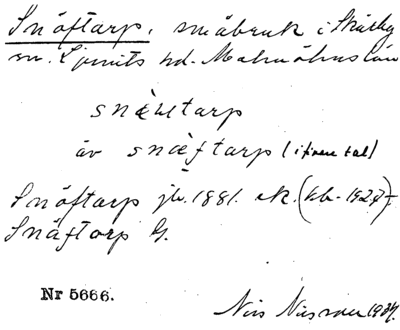 Snöftarp, småbruk i Skårby
sn. Ljunits hd. Malmöhus län
snὲωtarp
äv snὲftarp (i finare tal)
Snöftarp jb. 1881. ek. (kb. 1927)
Snäftorp G.
Nr 5666.
Nils Nilsson 1934.